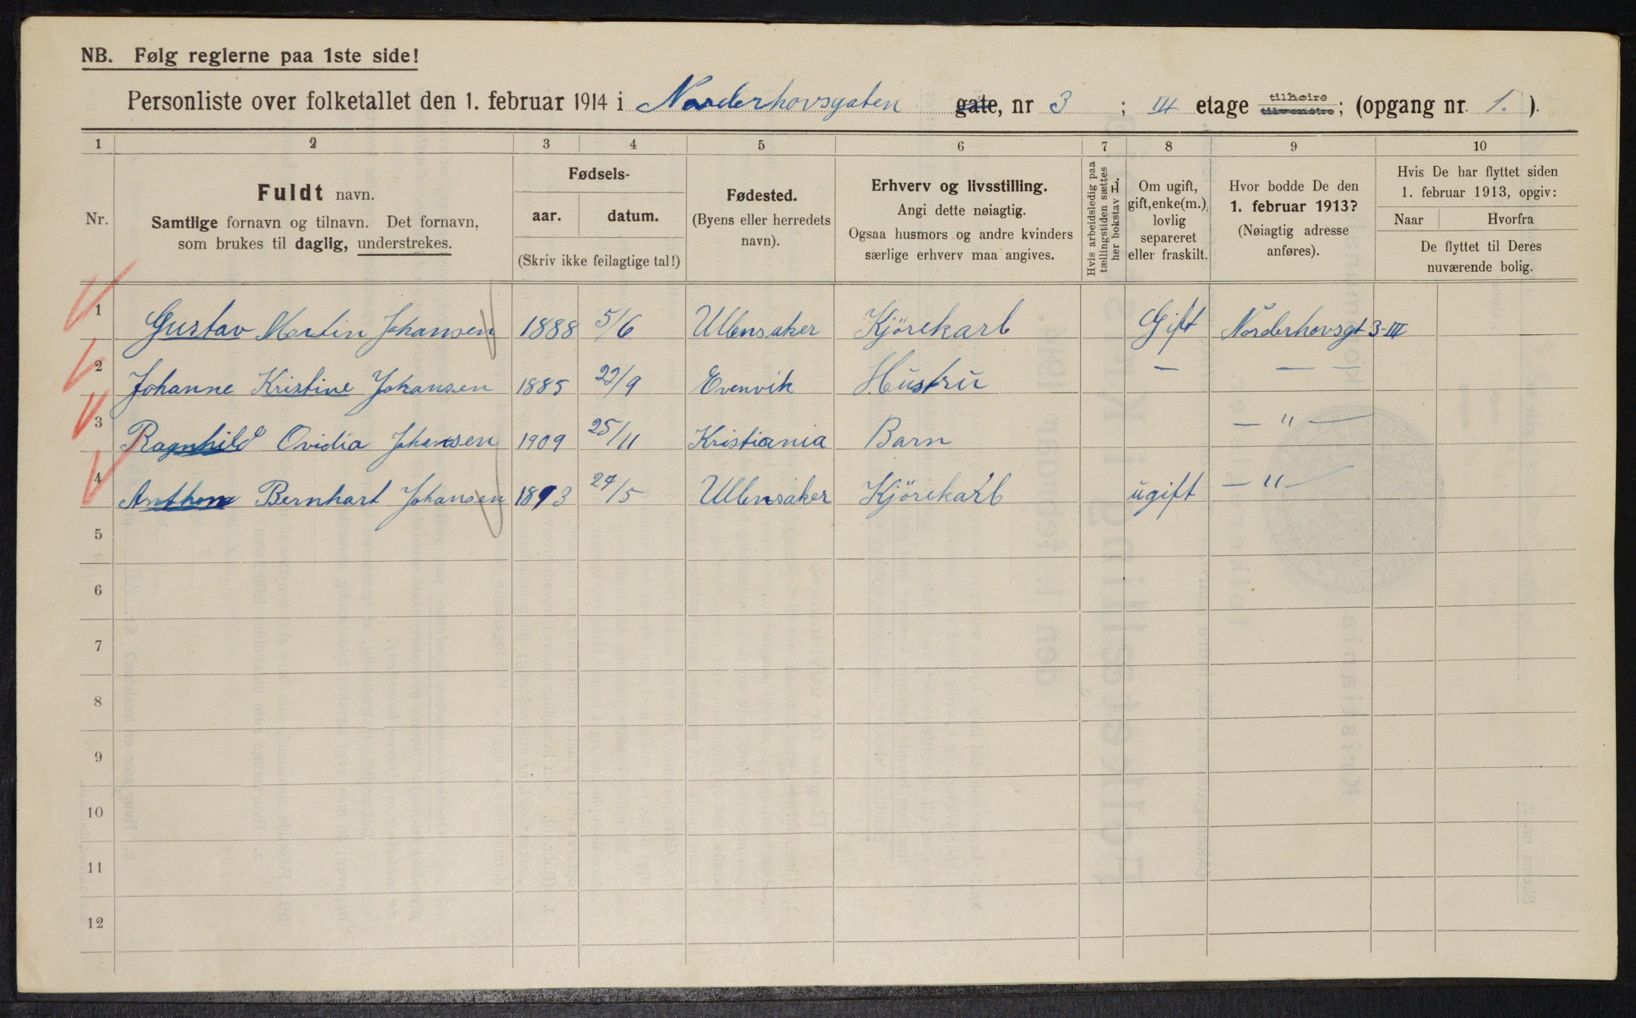 NB. Følg reglerne paa 1ste side!
Personliste over folketallet den 1. februar 1914 i Norderhovsgaten gate, nr 3 ; III etage tilhøire tilvenstre; (opgang nr. 1. ).
1 2 3 4 5 6 7 8 9 10
Nr.
Fuldt navn.
Samtlige fornavn og tilnavn. Det fornavn,
som brukes til daglig, understrekes.
Fødsels-
aar. datum.
(Skriv ikke feilagtige tal!)
Fødested.
(Byens eller herredets
navn).
Erhverv og livsstilling.
Angi dette nøiagtig.
Ogsaa husmors og andre kvinders
særlige erhverv maa angives.
Hvis arbeidsledig paa
tællingstiden sættes
her bokstav L.
Om ugift,
gift, enke(m.),
lovlig
separeret
eller fraskilt.
Hvor bodde De den
1. februar 1913?
(Nøiagtig adresse
anføres).
Hvis De har flyttet siden
1. februar 1913, opgiv:
Naar Hvorfra
De flyttet til Deres
nuværende bolig.
1 Gustav Martin Johansen 1888 5/6 Ullensaker Kjörekarl Gift Norderhovsgt 3-III
2 Johanne Kristine Johansen 1885 22/9 Evenvik Hustru — — —
3 Ragnhild Ovidia Johansen 1909 25/11 Kristiania Barn — " —
4 Anthon Bernhart Johansen 1893 27/5 Ullensaker Kjörekarl ugift — " —
5
6
7
8
9
10
11
12